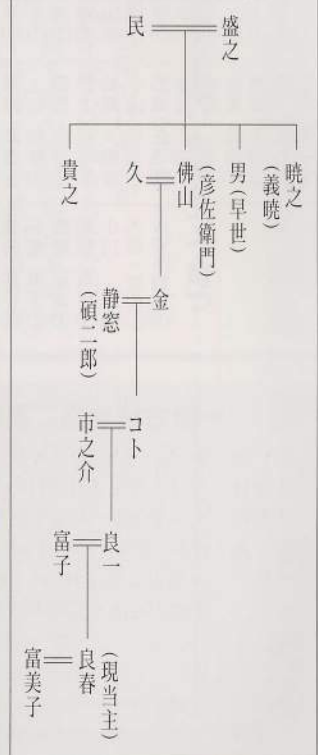 盛之
民
暁之
(義暁)
男(早世)
佛山
(彦佐衛門)
久
貴之
金
静窓
(碩二郎)
コト
市之介
良一
富子
(現当主)
良春
富美子